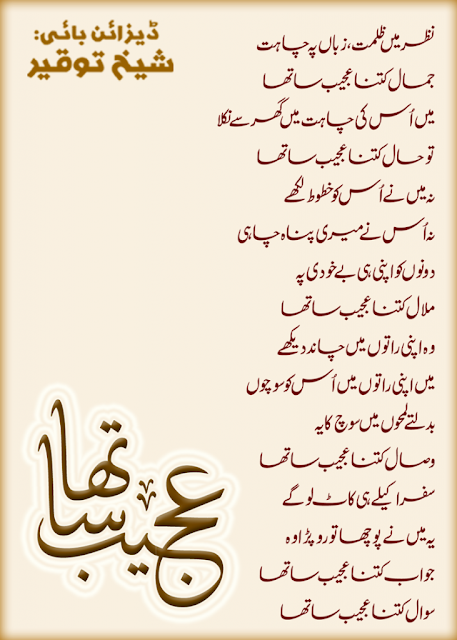 ڈیزائن بائی:
شیخ توقیر
نظر میں ظلمت، زباں پہ چاہت
جمال کتنا عجیب سا تھا
میں اُس کی چاہت میں گھر سے نکلا
تو حال کتنا عجیب سا تھا
نہ میں نے اُس کو خطوط لکھے
نہ اُس نے میری پناہ چاہی
دونوں کو اپنی ہی بے خودی پہ
ملال کتنا عجیب سا تھا
وہ اپنی راتوں میں چاند دیکھے
میں اپنی راتوں میں اُس کو سوچوں
بدلتے لمحوں میں سوچ کا یہ
وصال کتنا عجیب سا تھا
سفر اکیلے ہی کاٹ لو گے
یہ میں نے پوچھا تو رو پڑا وہ
جواب کتنا عجیب سا تھا
سوال کتنا عجیب سا تھا
عجیب سا تھا